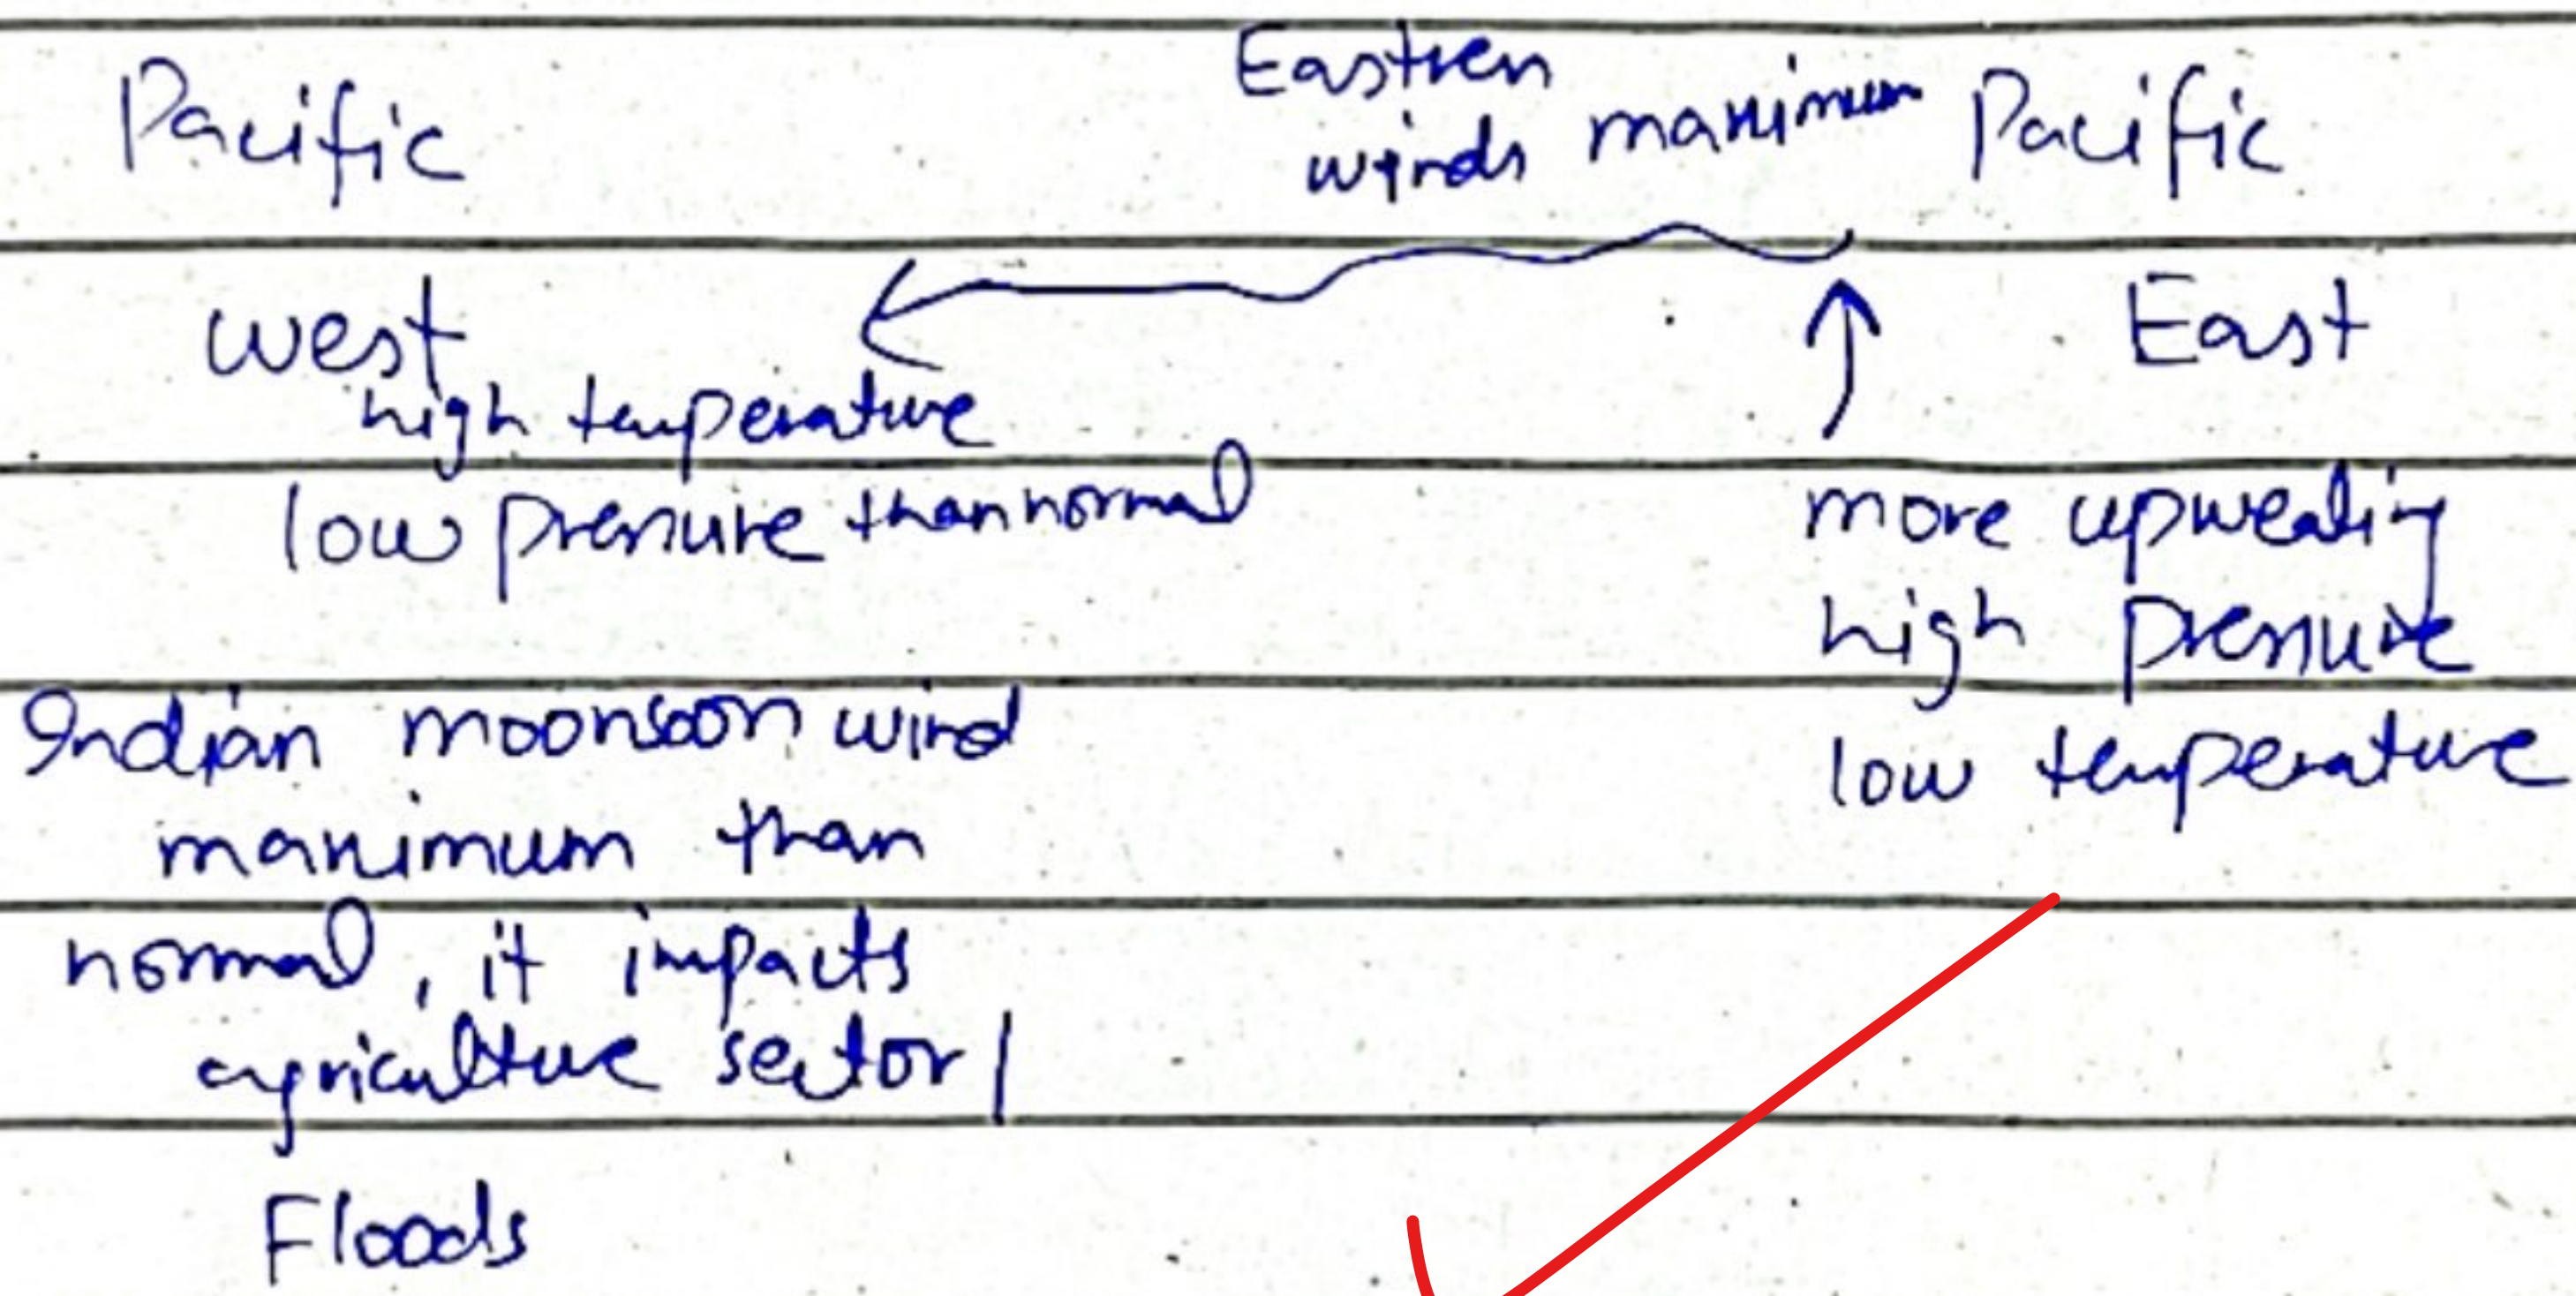 Pacific
Eastren
winds maximum Pacific
west
East
high temperature
low pressure than normal
more upwealing
high pressure
low temperature
Indian moonsoon wind
maximum than
normal, it impacts
agriculture sector /
Floods